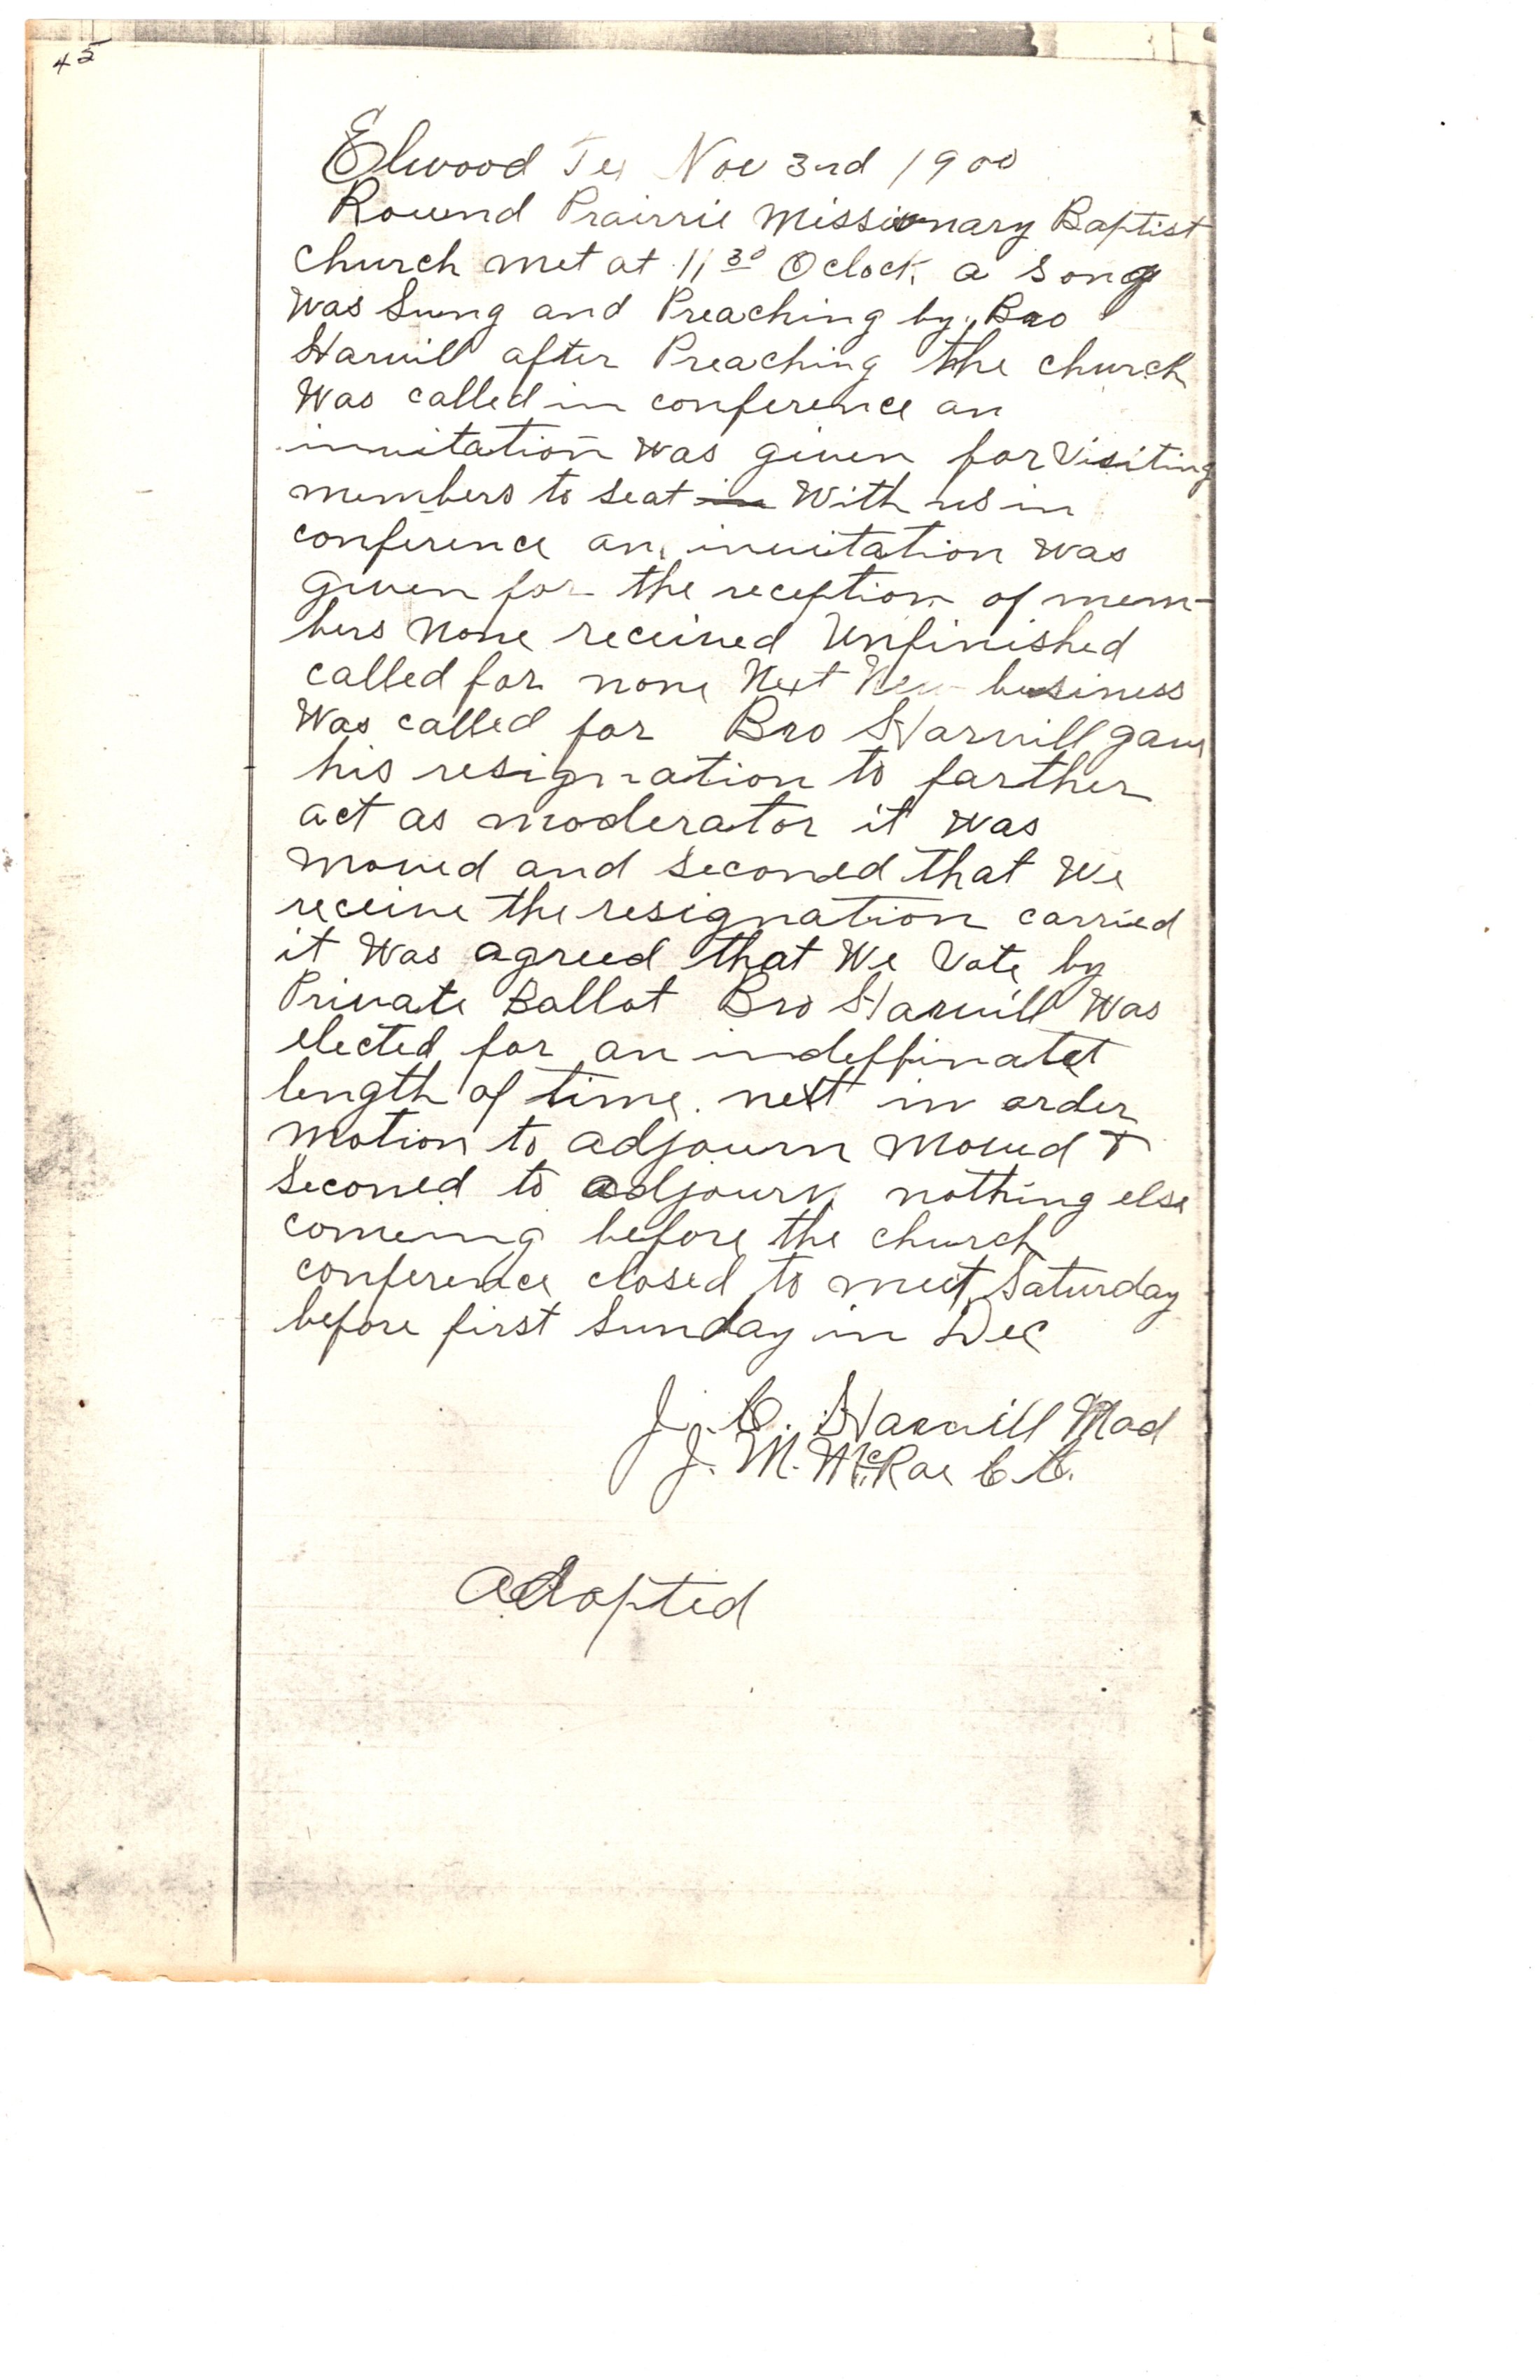 45
Elwood Tex Nov 3rd 1900
Round Prairrie Missionary Baptist
church met at 11 30 Oclock a song
was Sung and Preaching by Bro
Harvill after Preaching the church
Was called in conference an
invitation was given for Visiting
members to seat in With us in
conference an invitation was
given for the reception of mem-
bers none received Unfinished
called for none Next New business
Was called for Bro Harvill gave
his resignation to farther
act as moderator it was
moved and seconed that We
receive the resignation carried
it Was agreed that We Vote by
Private Ballot Bro Harvill Was
elected for an indeffinatet
length of time. next in order
motion to adjourn moved &
Seconed to adjourn nothing else
comeing before the church
conference closed to meet Saturday
before first Sunday in Dec
J. C. Harvill Mod
J. M. McRae C C.
adopted